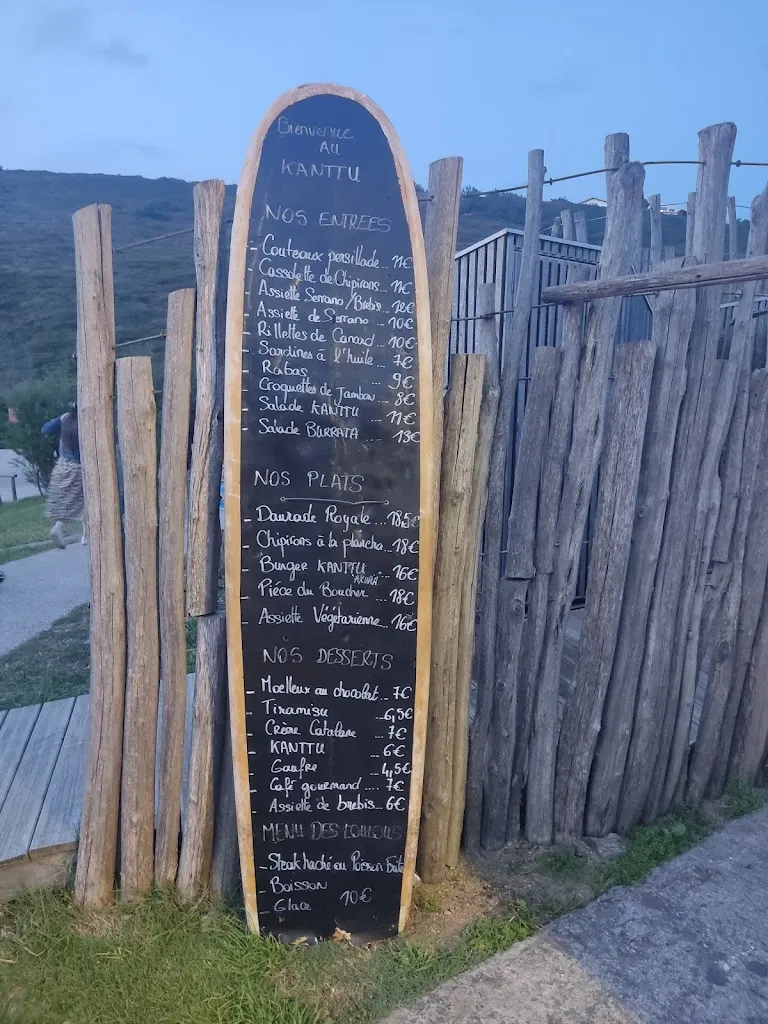 Bienvenue
AU
KANTTU
NOS ENTREES
- Couteaux persillade... 11€
- Cassolette de Chipirons... 11€
- Assiette Serrano/Brebis... 12€
- Assiette de Serrano... 10€
- Rillettes de Canard... 10€
- Sardines à l'huile... 7€
- Rabas 9€
- Croquettes de Jambon... 8€
- Salade KANTTU 11€
- Salade BURRATA .... 13€
NOS PLATS
- Daurade Royale... 18,5€
- Chipirons à la plancha... 18€
- Burger KANTTU ... 16€
- Pièce du Boucher... 18€
- Assiette Végétarienne... 16€
NOS DESSERTS
- Moelleux au chocolat... 7€
- Tiramisu ... 6,5€
- Crème Catalane ... 7€
- KANTTU ... 6€
- Gaufre ... 4,5€
- Café gourmand.... 7€
- Assiette de brebis... 6€
MENU DES LOULOUS
- Steak haché ou Poisson frite
- Boisson
- Glace 10€